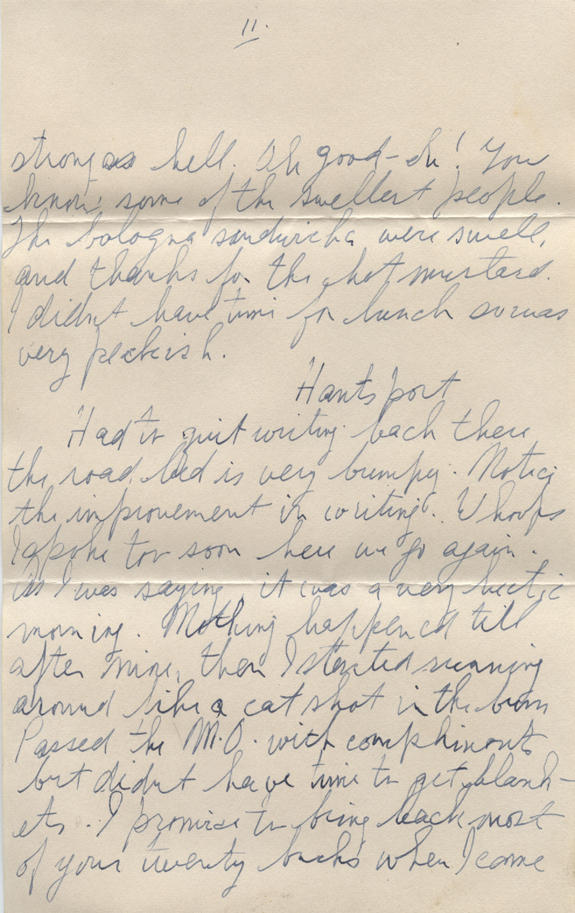 11.
strong as hell. Oh good-oh! You
know some of the swellest people.
The bologna sandwichs were swell,
and thanks for the hot mustard.
I didn't have time for lunch so was
very peckish.
Hantsport
Had to quit writing back there
the road bed is very bumpy. Notice
the improvement in writing. Whoops
I spoke too soon here we go again.
As I was saying, it was a very hectic
morning. Nothing happened till
after nine, then I started running
around like a cat shot in the bum
Passed the M.O. with compliments
but didn't have time to get blank-
ets. I promise to bring back most
of your twenty bucks when I come